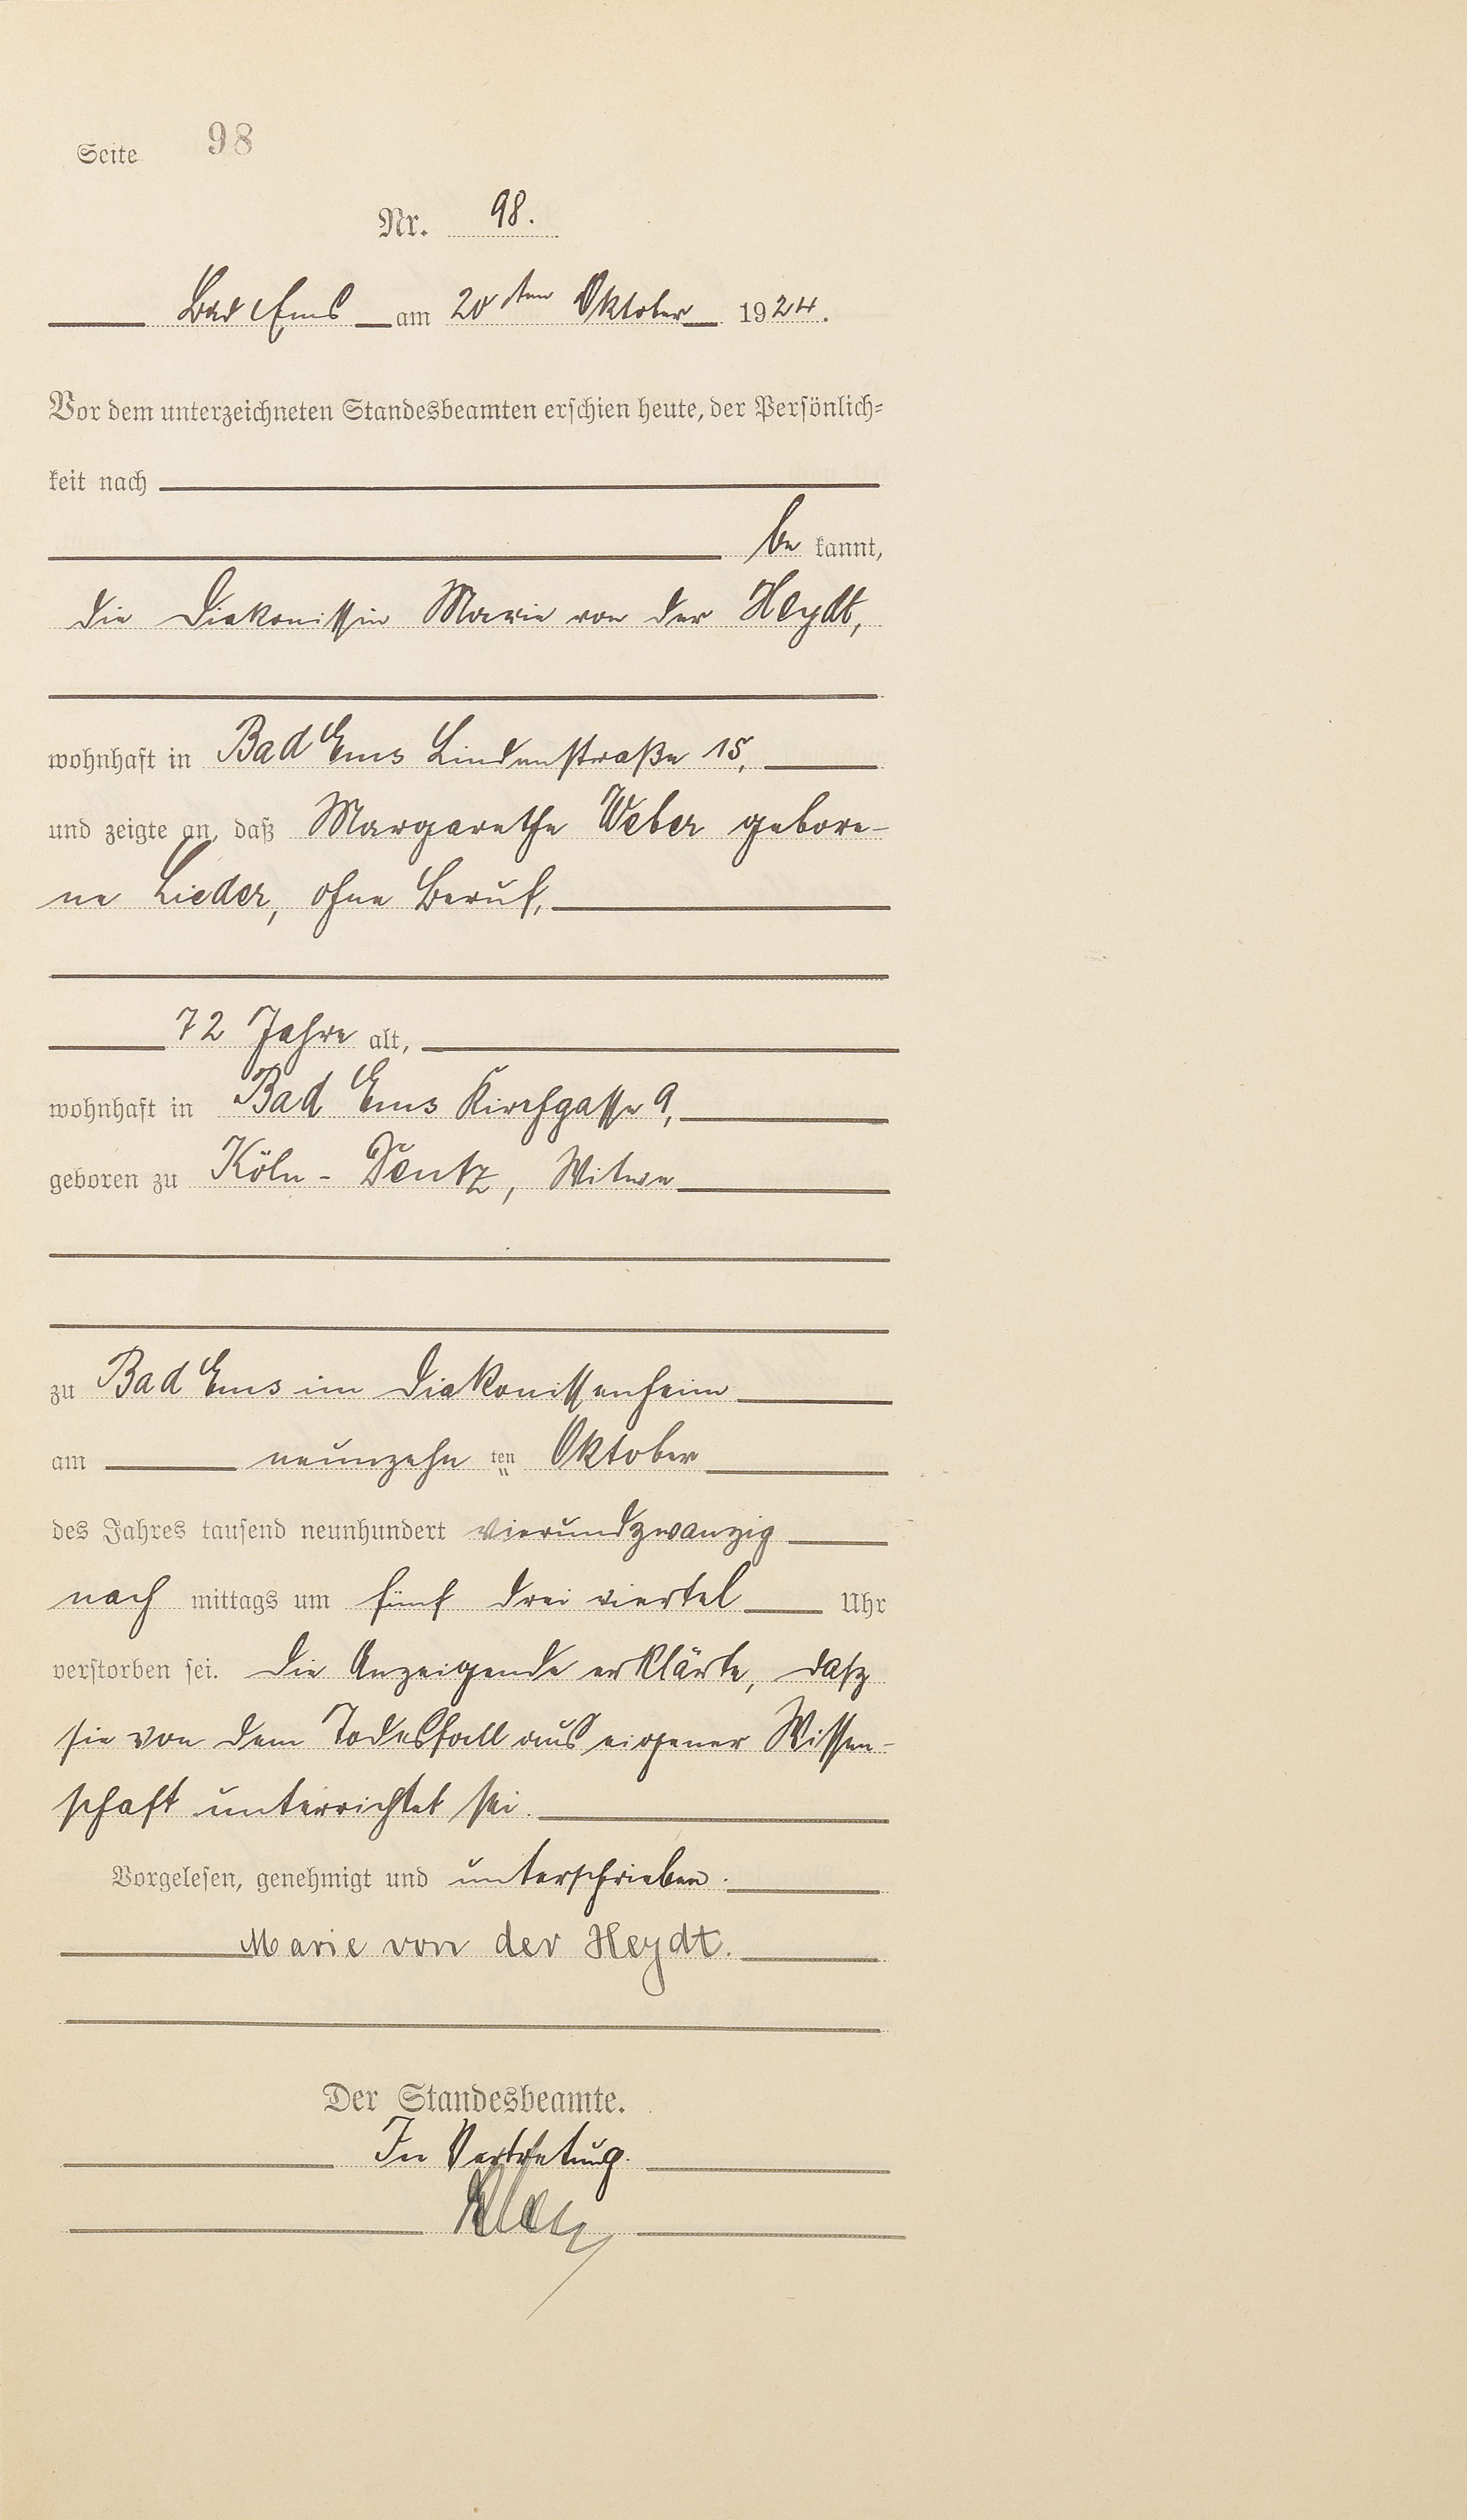 Seite 98
Nr. 98.
Bad Ems am 20ten Oktober 1924.
Vor dem unterzeichneten Standesbeamten erschien heute, der Persönlich-
keit nach
be kannt,
die Diakonissin Marie von der Heydt,
wohnhaft in Bad Ems Lindenstraße 15,
und zeigte an, daß Margarethe Weber gebore-
ne Lieder, ohne Beruf,
72 Jahre alt,
wohnhaft in Bad Ems Kirchgasse 9,
geboren zu Köln - Deutz, Witwe
zu Bad Ems im Diakonissenheim
am neunzehn ten Oktober
des Jahres tausend neunhundert vierundzwanzig
nach mittags um fünf drei viertel Uhr
verstorben sei. Die Anzeigende erklärte, daß
sie von dem Todesfall aus eigener Wissen-
schaft unterrichtet sei.
Vorgelesen, genehmigt und unterschrieben.
Marie von der Heydt.
Der Standesbeamte.
In Vertretung.